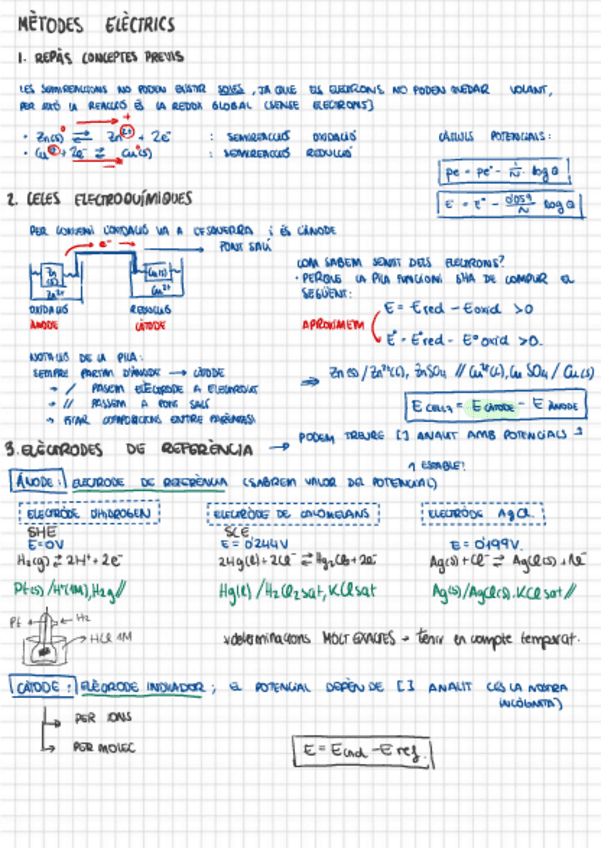 MÈTODES ELÈCTRICS
1. REPÀS CONCEPTES PREVIS
LES SEMIREACCIONS NO PODEN EXISTIR SOLES, JA QUE ELS ELECTRONS NO PODEN QUEDAR VOLANT,
PER AIXÒ LA REACCIÓ ÉS LA REDOX GLOBAL (SENSE ELECTRONS)
· Zn(s) ⇌ Zn²⁺ + 2e⁻ : SEMIREACCIÓ OXIDACIÓ
CÀLCULS POTENCIALS:
· Cu²⁺ + 2e⁻ ⇌ Cu(s) : SEMIREACCIÓ REDUCCIÓ
pe = pe° - 1/N · log Q
E = E° - 0'059/N log Q
2. CEL·LES ELECTROQUÍMIQUES
PER CONVENI L'OXIDACIÓ VA A L'ESQUERRA I ÉS L'ÀNODE
e⁻
PONT SALÍ
Zn (s)
Cu(s)
Zn²⁺
Cu²⁺
OXIDACIÓ
REDUCCIÓ
ÀNODE
CÀTODE
COM SABEM SENTIT DELS ELECTRONS?
· PERQUÈ LA PILA FUNCIONI S'HA DE COMPLIR EL
SEGÜENT:
E = Ered - Eoxid > 0
APROXIMEM
E° = E°red - E°oxid > 0.
NOTACIÓ DE LA PILA:
SEMPRE PARTIM D'ÀNODE → CÀTODE
→ / PASSEM ELÈCTRODE A ELECTRÒLIT
→ // PASSEM A PONT SALÍ
→ FICAR COMPOSICIONS ENTRE PARÈNTESI
⇒ Zn(s) / Zn²⁺(C), ZnSO₄ // Cu²⁺(C), CuSO₄ / Cu(s)
E CEL·LA = E CÀTODE - E ÀNODE
3. ELÈCTRODES DE REFERÈNCIA → PODEM TREURE [] ANALIT AMB POTENCIALS
↑ ESTABLE!
ÀNODE: ELECTRODE DE REFERÈNCIA (SABREM VALOR DEL POTENCIAL)
ELECTRODE D'HIDROGEN
ELECTRÒDE DE CALOMELANS
ELECTRÒDE AgCl
SHE
SCE
E = 0V
E = 0'244V
E = 0'199V
H₂(g) ⇌ 2H⁺ + 2e⁻
2Hg(l) + 2Cl⁻ ⇌ Hg₂Cl₂ + 2e⁻
Ag(s) + Cl⁻ ⇌ AgCl(s) + 1e⁻
Pt(s) / H⁺(1M), H₂g //
Hg(l) / H₂Cl₂ sat, KCl sat
Ag(s) / AgCl(s), KCl sat //
Pt
H₂
HCl 1M
* determinacions MOLT EXACTES → tenir en compte temperat.
CÀTODE: ELÈCTRODE INDICADOR; EL POTENCIAL DEPÈN DE [] ANALIT (ÉS LA NOSTRA
INCÒGNITA)
PER IONS
PER MOLEC
E = Eind - Eref.